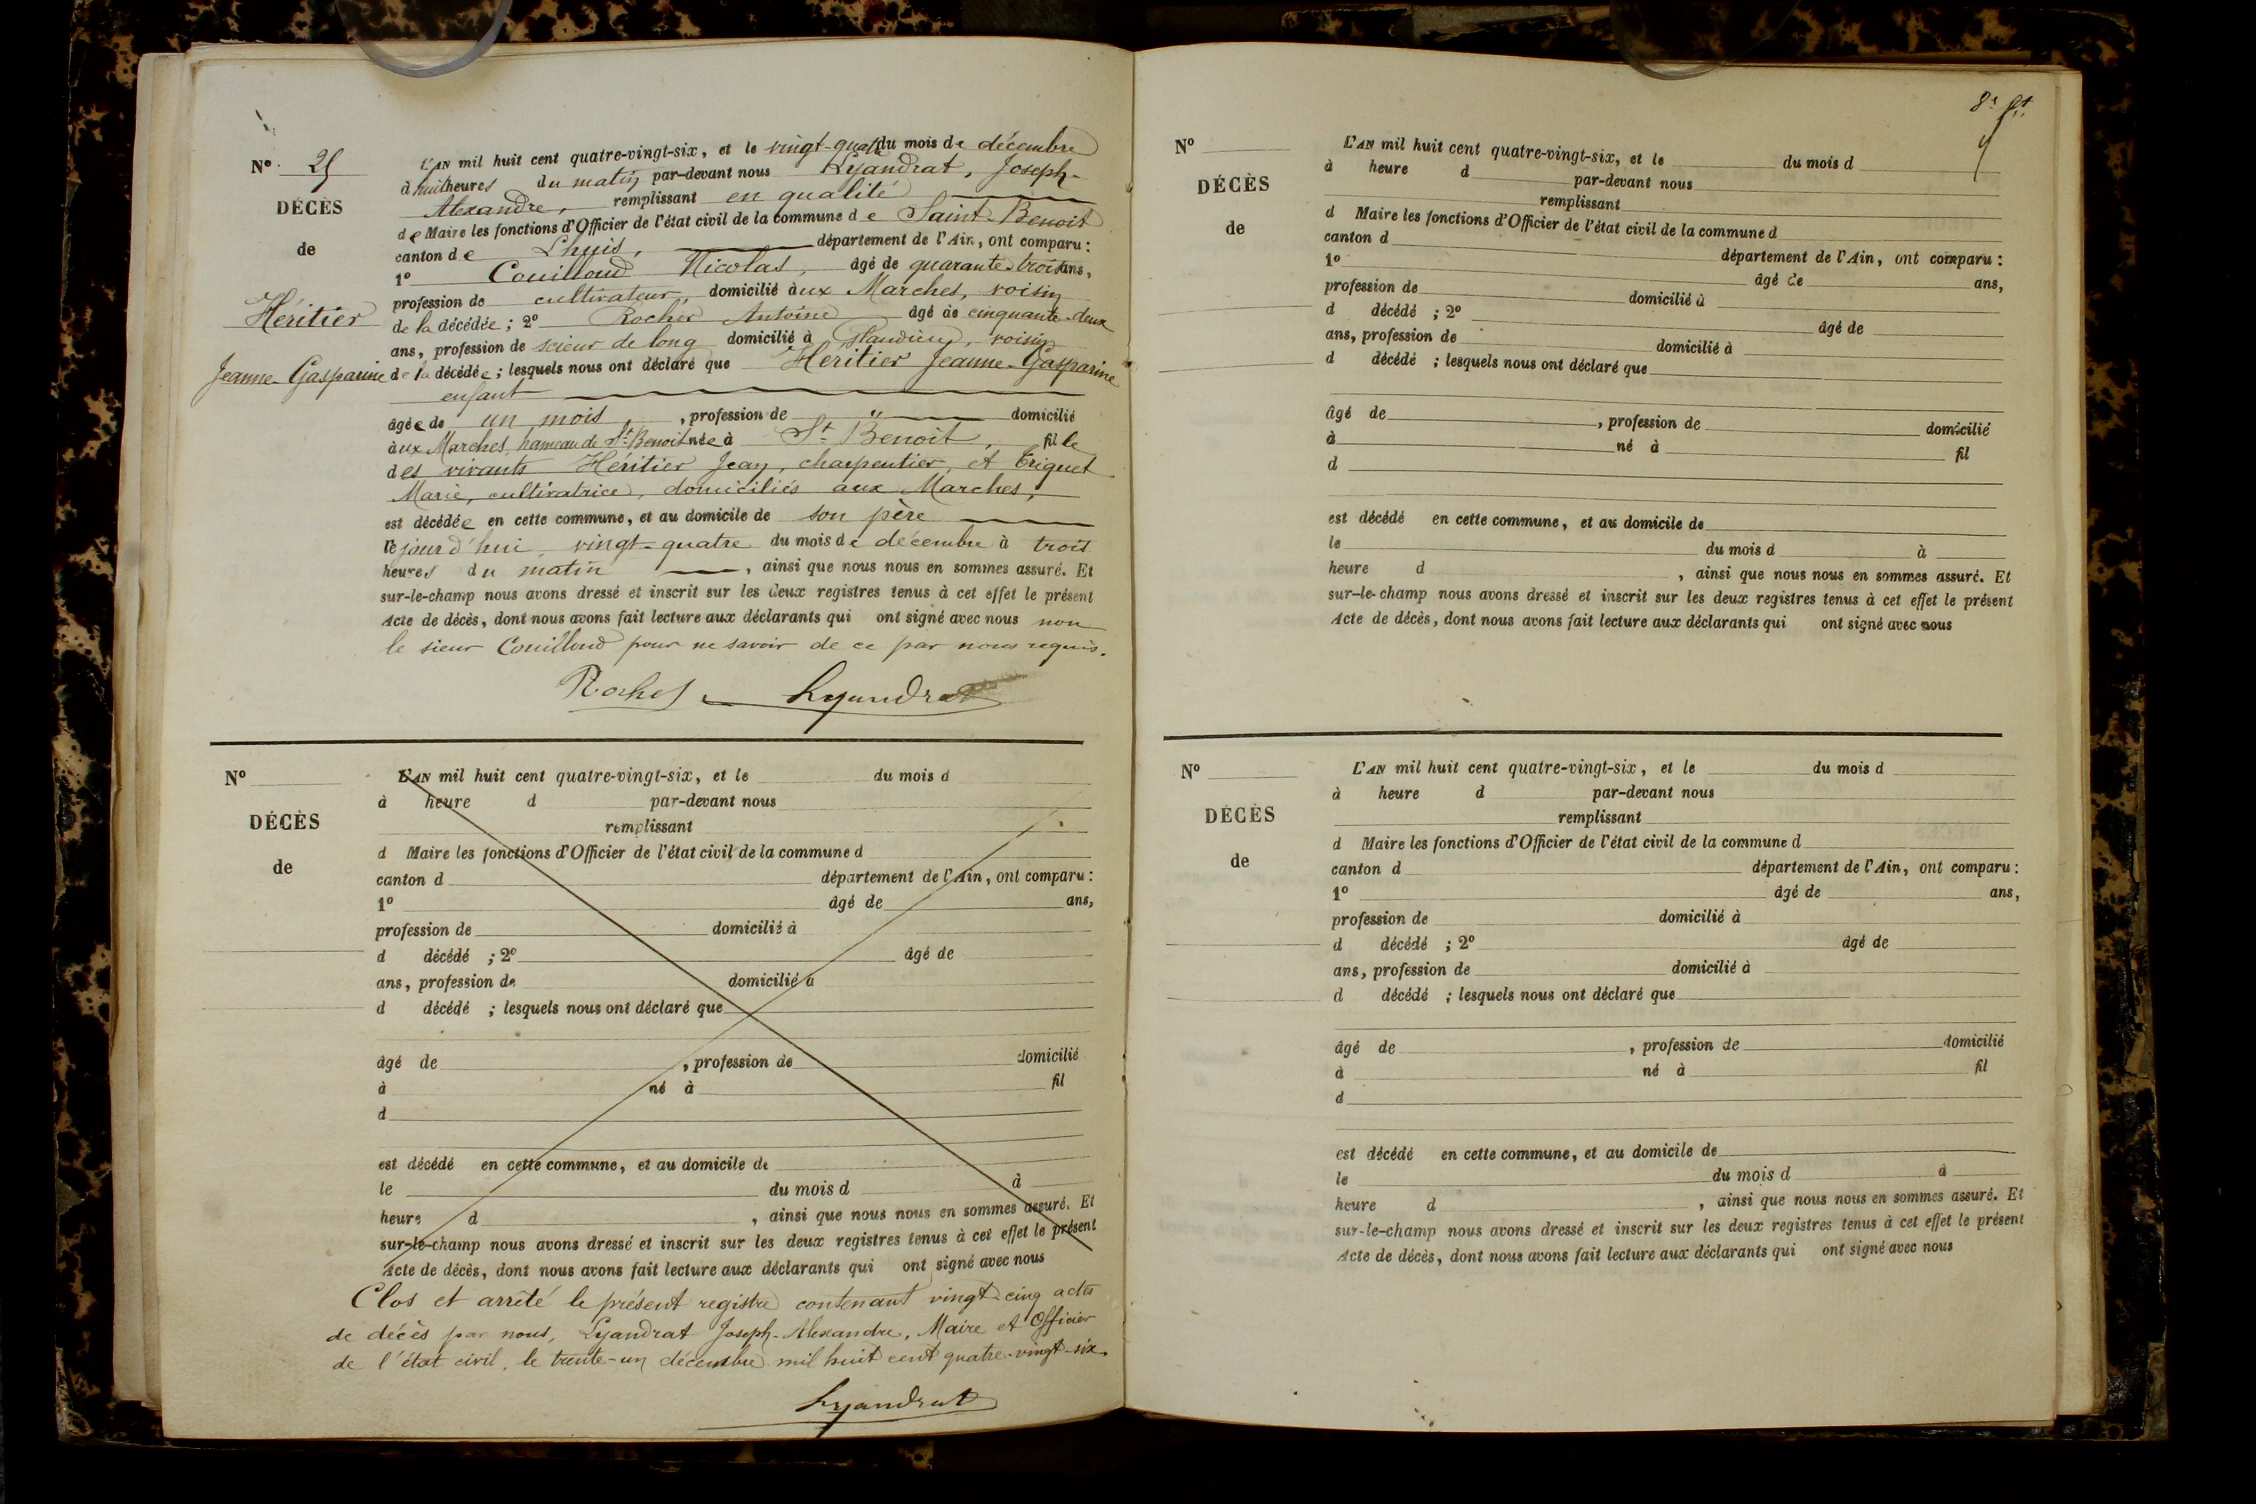 N° 25
DÉCÈS
de
Héritier
Jeanne-Gasparine
L'AN mil huit cent quatre-vingt-six, et le vingt-quatre du mois de décembre
à huit heures du matin par-devant nous Lyandrat, Joseph-
Alexandre, remplissant en qualité
de Maire les fonctions d'Officier de l'état civil de la commune de Saint-Benoit
canton de Lhuis, département de l'Ain, ont comparu :
1° Couilloud Nicolas, âgé de quarante-trois ans,
profession de cultivateur, domicilié aux Marches, voisin
de la décédée ; 2° Rocher Antoine âgé de cinquante-deux
ans, profession de scieur de long domicilié à voisin
de la décédée ; lesquels nous ont déclaré que Héritier Jeanne-Gasparine
enfant
âgée de un mois, profession de " domicilié
aux Marches, hameau de St Benoit née à St Benoit, fille
des vivants Héritier Jean, charpentier, et Triquet
Marie, cultivatrice, domiciliés aux Marches,
est décédée en cette commune, et au domicile de son père
ce jour d'hui, vingt-quatre du mois de décembre à trois
heures du matin, ainsi que nous nous en sommes assuré. Et
sur-le-champ nous avons dressé et inscrit sur les deux registres tenus à cet effet le présent
Acte de décès, dont nous avons fait lecture aux déclarants qui ont signé avec nous non
le sieur Couilloud pour ne savoir de ce par nous requis.
Rocher Lyandrat
N°
DÉCÈS
de
L'AN mil huit cent quatre-vingt-six, et le du mois d
à heure d par-devant nous
remplissant
d Maire les fonctions d'Officier de l'état civil de la commune d
canton d département de l'Ain, ont comparu :
1° âgé de ans,
profession de domicilié à
d décédé ; 2° âgé de
ans, profession de domicilié à
d décédé ; lesquels nous ont déclaré que
âgé de , profession de domicilié
à né à fil
d
est décédé en cette commune, et au domicile de
le du mois d à
heure d , ainsi que nous nous en sommes assuré. Et
sur-le-champ nous avons dressé et inscrit sur les deux registres tenus à cet effet le présent
Acte de décès, dont nous avons fait lecture aux déclarants qui ont signé avec nous
Clos et arrêté le présent registre contenant vingt-cinq actes
de décès par nous, Lyandrat Joseph-Alexandre, Maire et Officier
de l'état civil, le trente-un décembre mil huit cent quatre-vingt-six.
Lyandrat
N°
DÉCÈS
de
L'AN mil huit cent quatre-vingt-six, et le du mois d
à heure d par-devant nous
remplissant
d Maire les fonctions d'Officier de l'état civil de la commune d
canton d département de l'Ain, ont comparu :
1° âgé de ans,
profession de domicilié à
d décédé ; 2° âgé de
ans, profession de domicilié à
d décédé ; lesquels nous ont déclaré que
âgé de , profession de domicilié
à né à fil
d
est décédé en cette commune, et au domicile de
le du mois d à
heure d , ainsi que nous nous en sommes assuré. Et
sur-le-champ nous avons dressé et inscrit sur les deux registres tenus à cet effet le présent
Acte de décès, dont nous avons fait lecture aux déclarants qui ont signé avec nous
N°
DÉCÈS
de
L'AN mil huit cent quatre-vingt-six, et le du mois d
à heure d par-devant nous
remplissant
d Maire les fonctions d'Officier de l'état civil de la commune d
canton d département de l'Ain, ont comparu :
1° âgé de ans,
profession de domicilié à
d décédé ; 2° âgé de
ans, profession de domicilié à
d décédé ; lesquels nous ont déclaré que
âgé de , profession de domicilié
à né à fil
d
est décédé en cette commune, et au domicile de
le du mois d à
heure d , ainsi que nous nous en sommes assuré. Et
sur-le-champ nous avons dressé et inscrit sur les deux registres tenus à cet effet le présent
Acte de décès, dont nous avons fait lecture aux déclarants qui ont signé avec nous